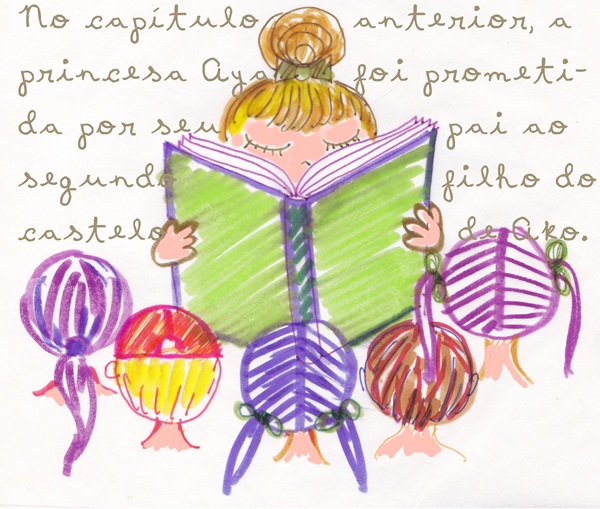 No capítulo anterior, a
princesa Aya foi prometi-
da por seu pai ao
segundo filho do
castelo de Ako.